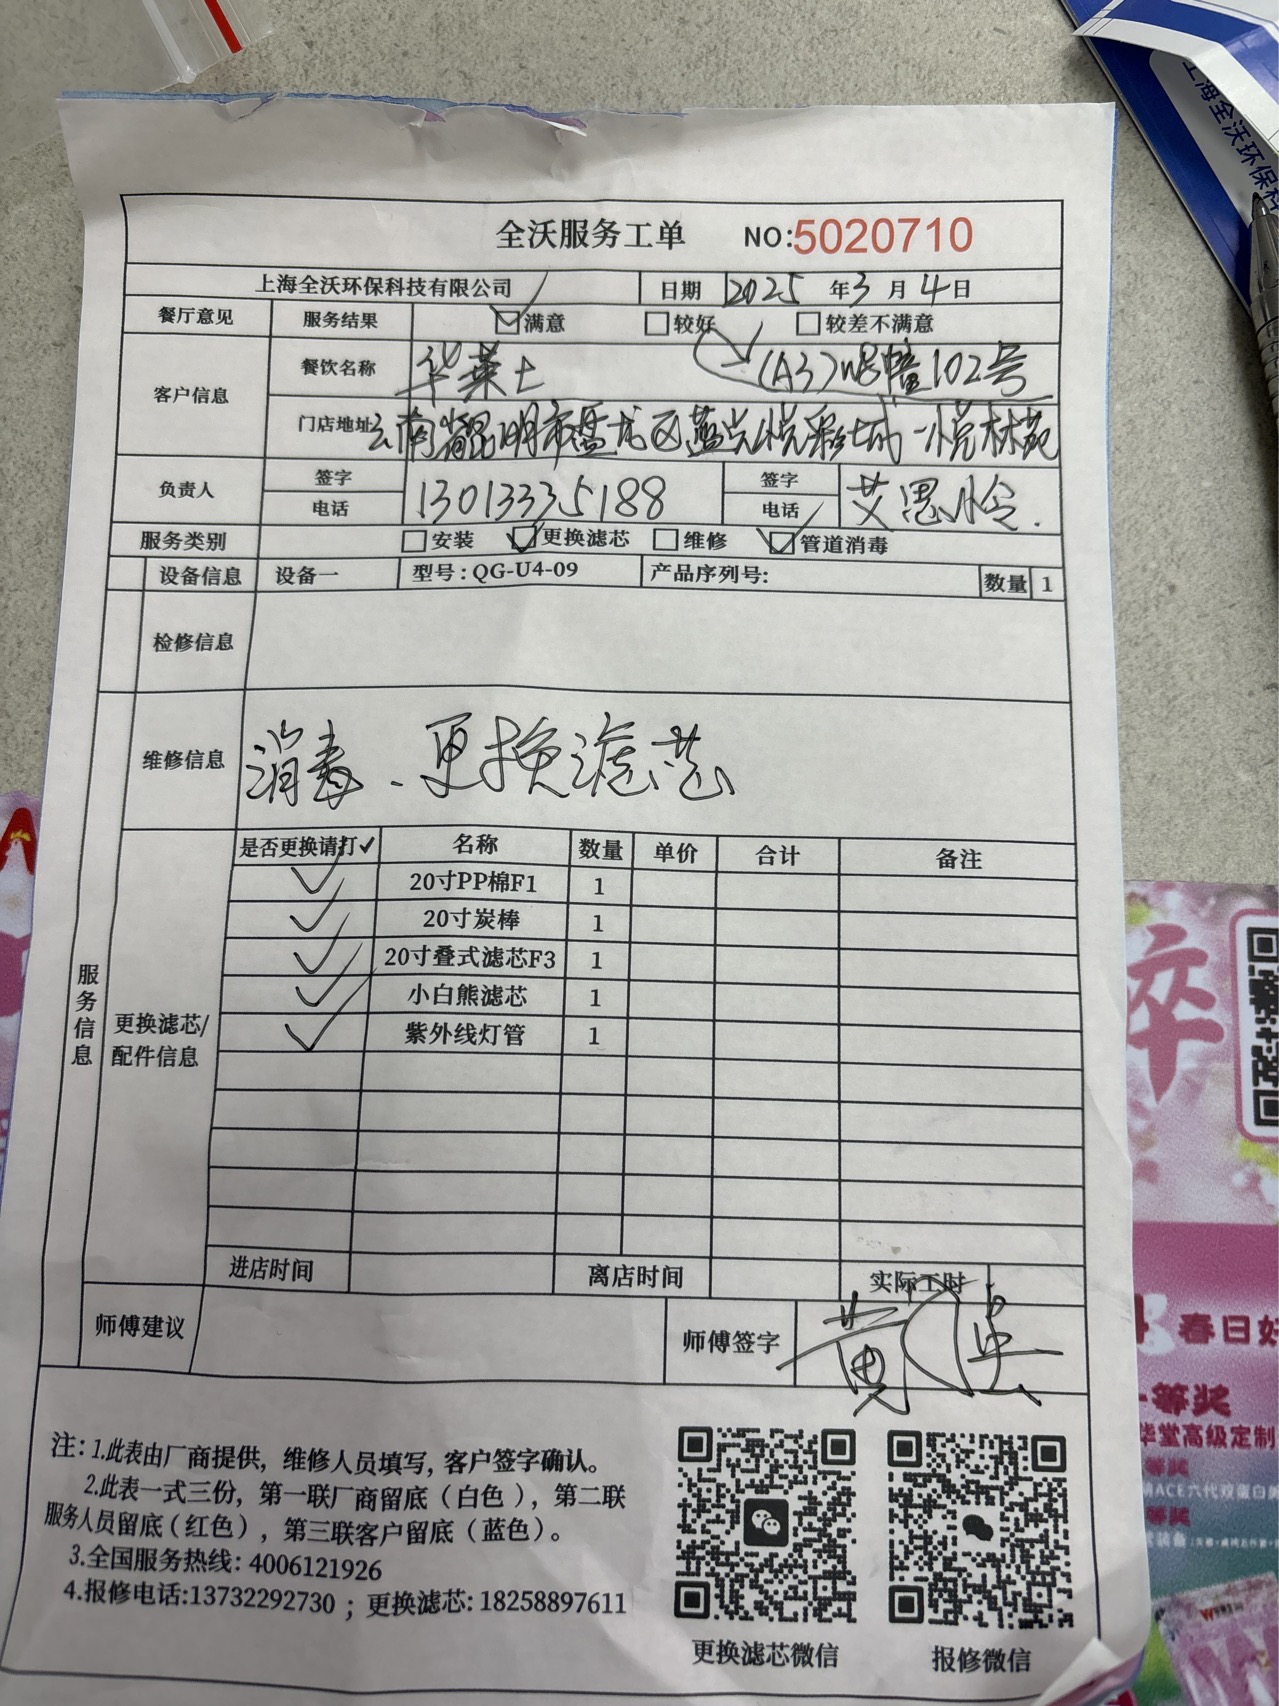 上海全沃环保科
全沃服务工单 NO:5020710
上海全沃环保科技有限公司 日期 2025年3月4日
餐厅意见 服务结果 满意 较好 较差不满意
客户信息 餐饮名称 华莱士 (A3) 幢102号
门店地址 云南省昆明市盘龙区蓝光悦彩城-悦林苑
负责人 签字 电话 13013335188 签字 电话 艾思怜.
服务类别 安装 更换滤芯 维修 管道消毒
设备信息 设备一 型号:QG-U4-09 产品序列号: 数量 1
检修信息
维修信息 消毒、更换滤芯
服务信息
更换滤芯/配件信息
是否更换请打✓ 名称 数量 单价 合计 备注
✓ 20寸PP棉F1 1
✓ 20寸炭棒 1
✓ 20寸叠式滤芯F3 1
✓ 小白熊滤芯 1
✓ 紫外线灯管 1
进店时间 离店时间 实际工时
师傅建议 师傅签字 黄
注:1.此表由厂商提供,维修人员填写,客户签字确认。
2.此表一式三份,第一联厂商留底(白色),第二联
服务人员留底(红色),第三联客户留底(蓝色)。
3.全国服务热线:4006121926
4.报修电话:13732292730;更换滤芯:18258897611
更换滤芯微信 报修微信
春日好
一等奖
华堂高级定制
等奖
ACE六代双蛋白
等奖